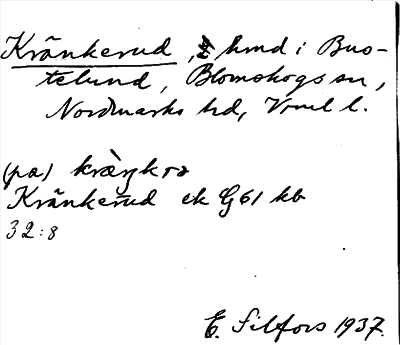 Kränkerud, hmd i Bus-
telund, Blomskogs sn,
Nordmarks hd, Vrml l.
(pa) kræ̀ŋkrə
Kränkerud ek G61 kb
32:8
E. Silfors 1937.